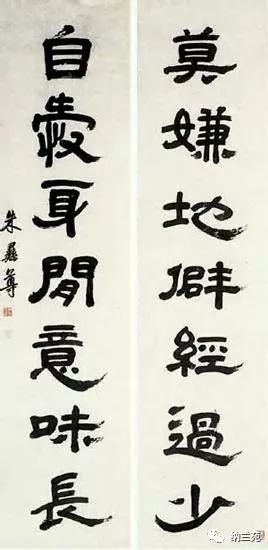 莫嫌地僻經過少
自愛身閒意味長
朱彝尊
纳兰苑